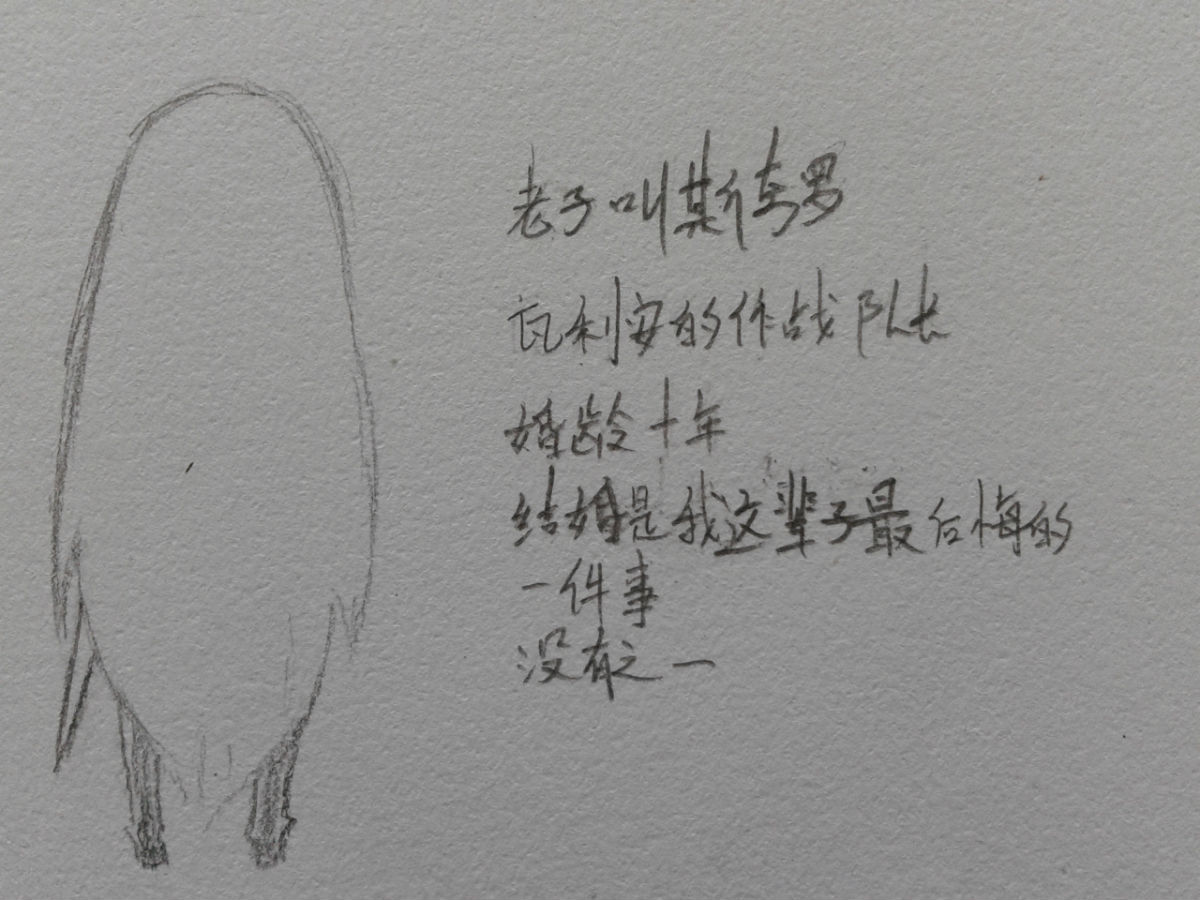 老子叫斯夸罗
瓦利安的作战队长
婚龄十年
结婚是我这辈子最后悔的
一件事
没有之一